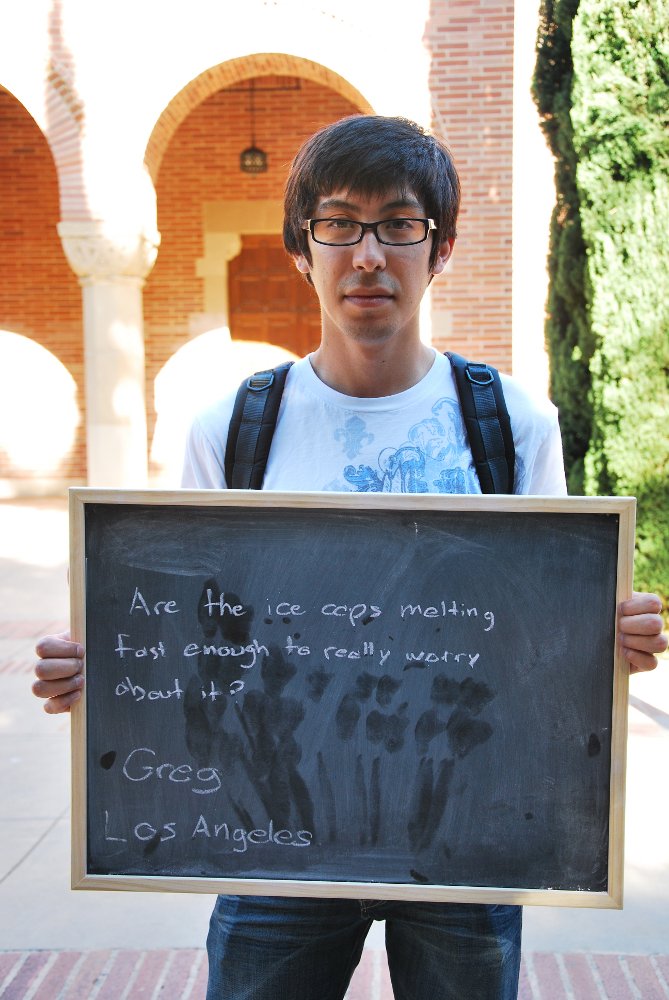 Are the ice caps melting
fast enough to really worry
about it?
Greg
Los Angeles